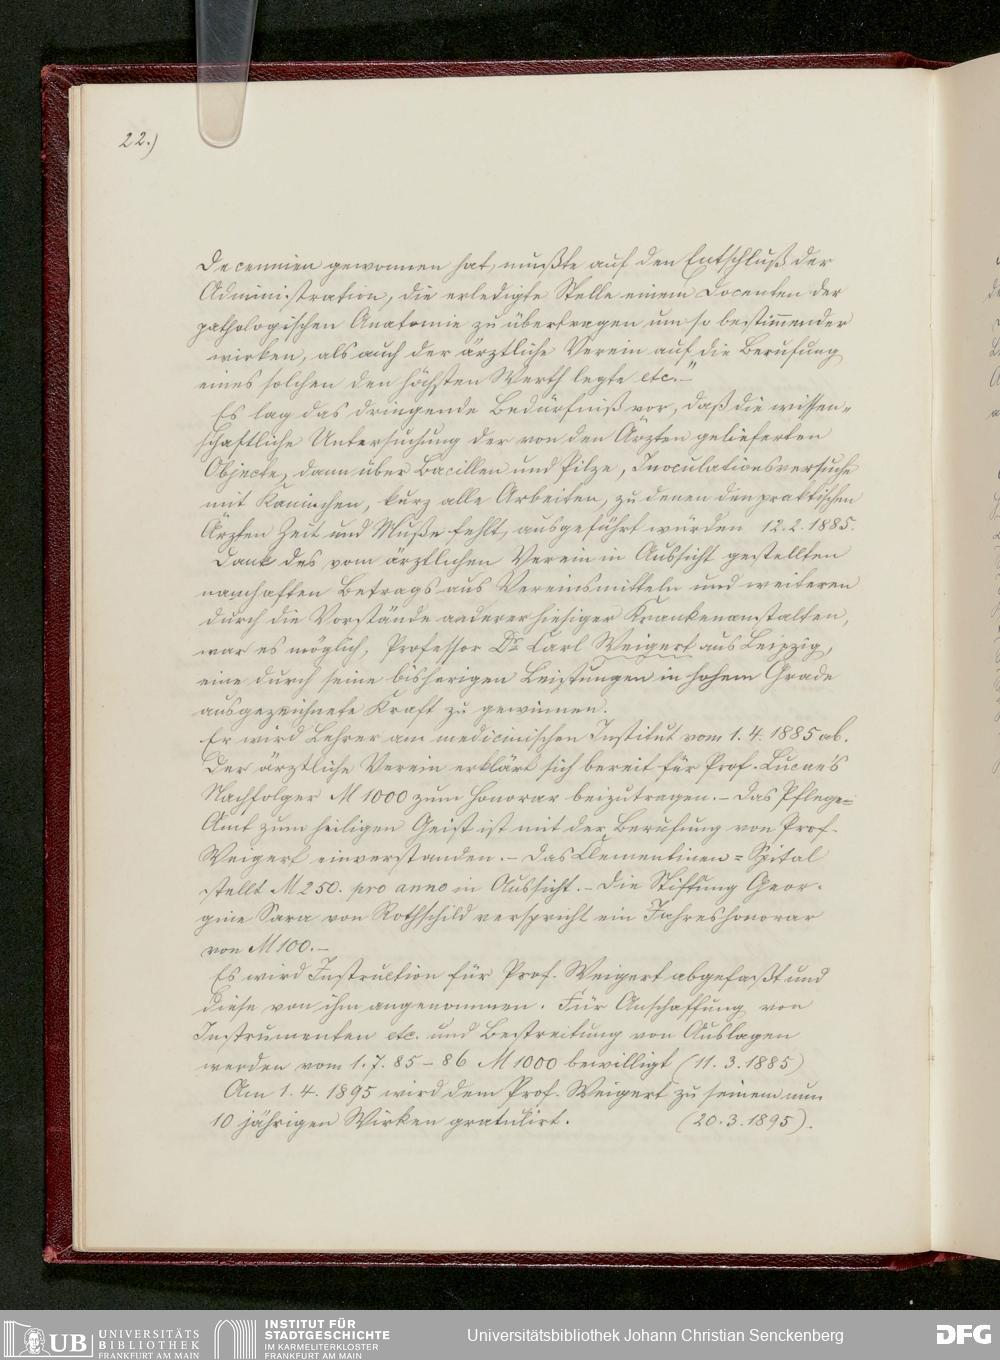 22.)
Decennien gewonnen hat, mußte auf den Entschluß der
Administration, die erledigte Stelle einem Docenten der
pathologischen Anatomie zu übertragen um so bestim̄ender
wirken, als auch der ärztliche Verein auf die Berufung
eines solchen den höchsten Werth legte etc.–"
Es lag das dringende Bedürfniß vor, daß die wissen-
schaftliche Untersuchung der von den Ärzten gelieferten
Objecte, dann über Bacillen und Pilze, Inoculationsversuche
mit Kaninchen, kurz alle Arbeiten, zu denen den praktischen
Ärzten Zeit und Muße fehlt, ausgeführt würden 12.2.1885.
Dank des vom ärztlichen Verein in Aussicht gestellten
namhaften Betrags aus Vereinsmitteln und weiteren
durch die Vorstände anderer hiesiger Krankenanstalten,
war es möglich, Professor Dr. Carl Weigert aus Leipzig,
eine durch seine bisherigen Leistungen in hohem Grade
ausgezeichnete Kraft zu gewinnen.
Er wird Lehrer am medicinischen Institut vom 1.4.1885 ab.
Der ärztliche Verein erklärt sich bereit für Prof. Lucae's
Nachfolger M 1000 zum Honorar beizutragen.– Das Pflege=
Amt zum heiligen Geist ist mit der Berufung von Prof.
Weigert einverstanden.– Das Clementinen=Spital
stellt M 250. pro anno in Aussicht.– Die Stiftung Geor-
gine Sara von Rothschild verspricht ein Jahreshonorar
von M 100.–
Es wird Instruction für Prof. Weigert abgefaßt und
diese von ihm angenommen. Für Anschaffung von
Instrumenten etc. und Bestreitung von Auslagen
werden vom 1.7.85–86 M 1000 bewilligt (11.3.1885)
Am 1.4.1895 wird dem Prof. Weigert zu seinem nun
10 jährigen Wirken gratulirt. (20.3.1895).
UB UNIVERSITÄTS
BIBLIOTHEK
FRANKFURT AM MAIN
INSTITUT FÜR
STADTGESCHICHTE
IM KARMELITERKLOSTER
FRANKFURT AM MAIN
Universitätsbibliothek Johann Christian Senckenberg
DFG